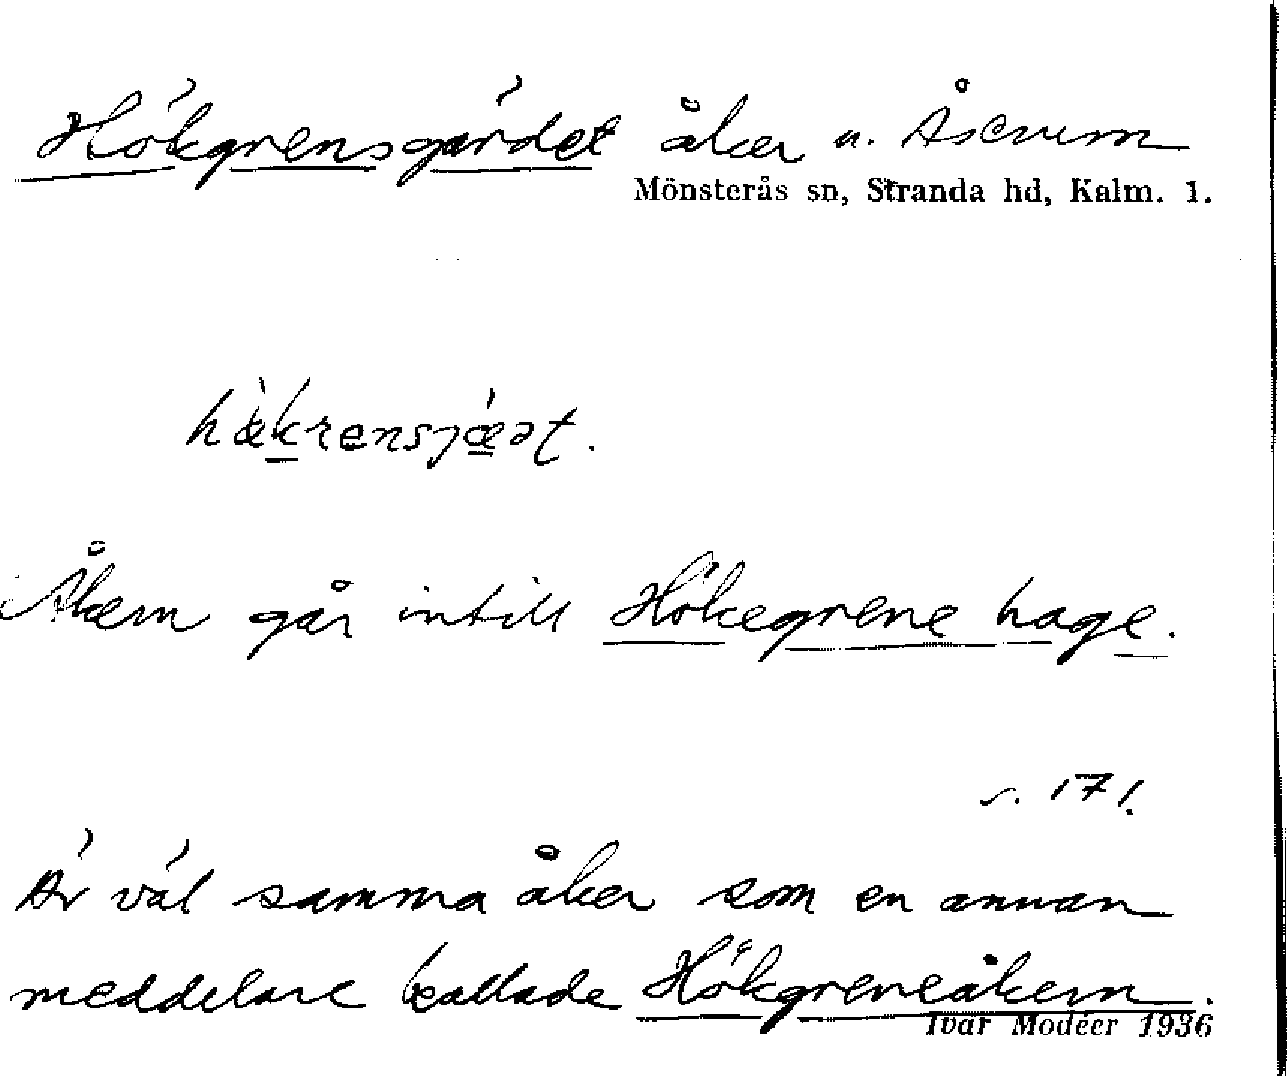 Hökgrensgärdet åker u. Åserum
Mönsterås sn, Stranda hd, Kalm. l.
Åkern går intill Hökegrens hage.
s. 171.
Är väl samma åker som en annan
meddelare kallade Hökgrensåkern.
Ivar Modéer 1936